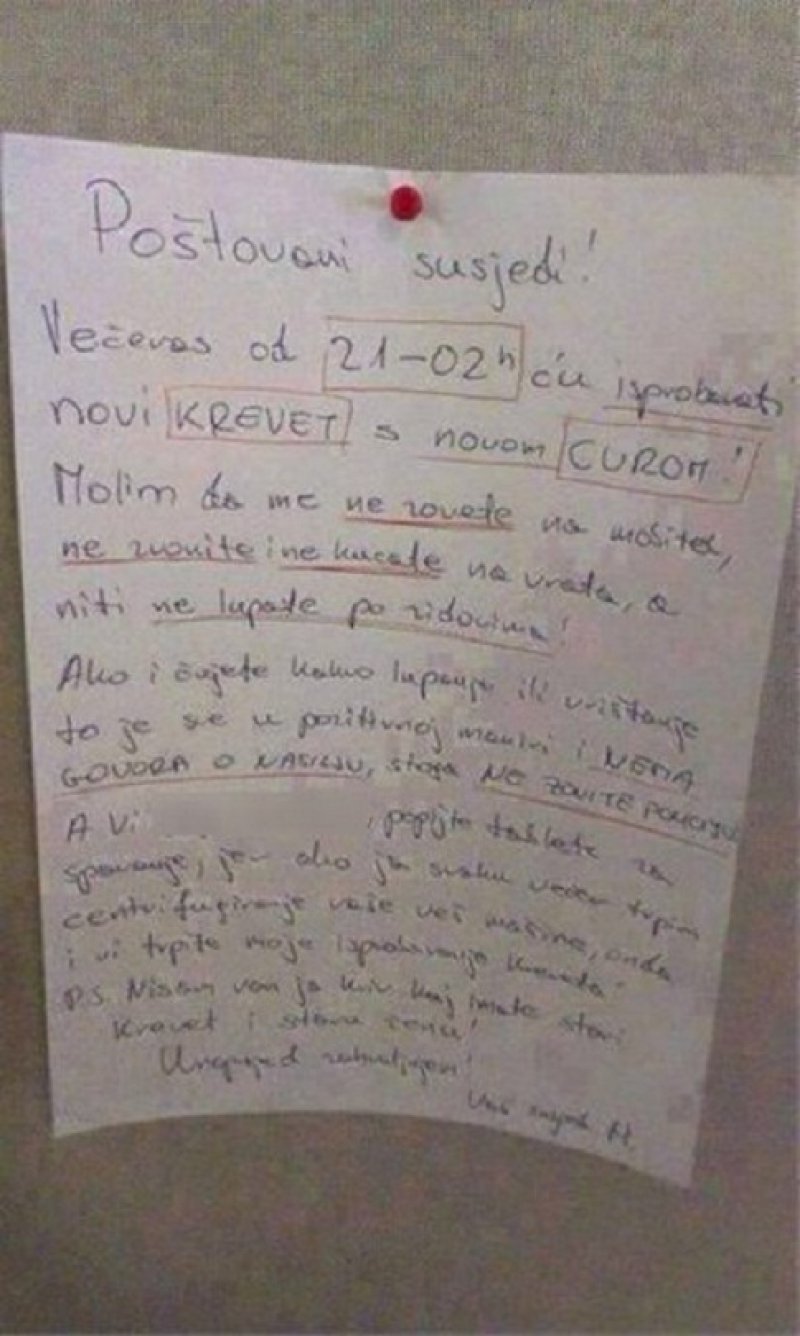 Poštovani susjedi!
Večeras od 21-02h ću isprobavati
novi KREVET s novom CUROM!
Molim da me ne zovete na mobitel,
ne zvonite i ne kucate na vrata, a
niti ne lupate po zidovima!
Ako i čujete kakvo lupanje ili vrištanje
to je sve u pozitivnoj maniri i NEMA
GOVORA O NASILJU, stoga NE ZOVITE POLICIJU
A Vi , popijte tablete za
spavanje, jer ako ja svaku večer trpim
centrifugiranje vaše veš mašine, onda
i vi trpite moje isprobavanje kreveta!
P.S. Nisam vam ja kriv kaj imate stari
krevet i staru ženu!
Unaprijed zahvaljujem!
Vaš susjed M.